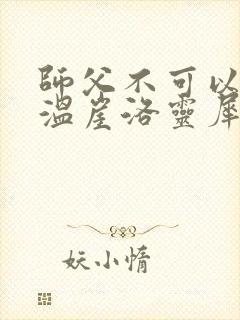 師父不可以
溫崖洛靈犀
妖小惰